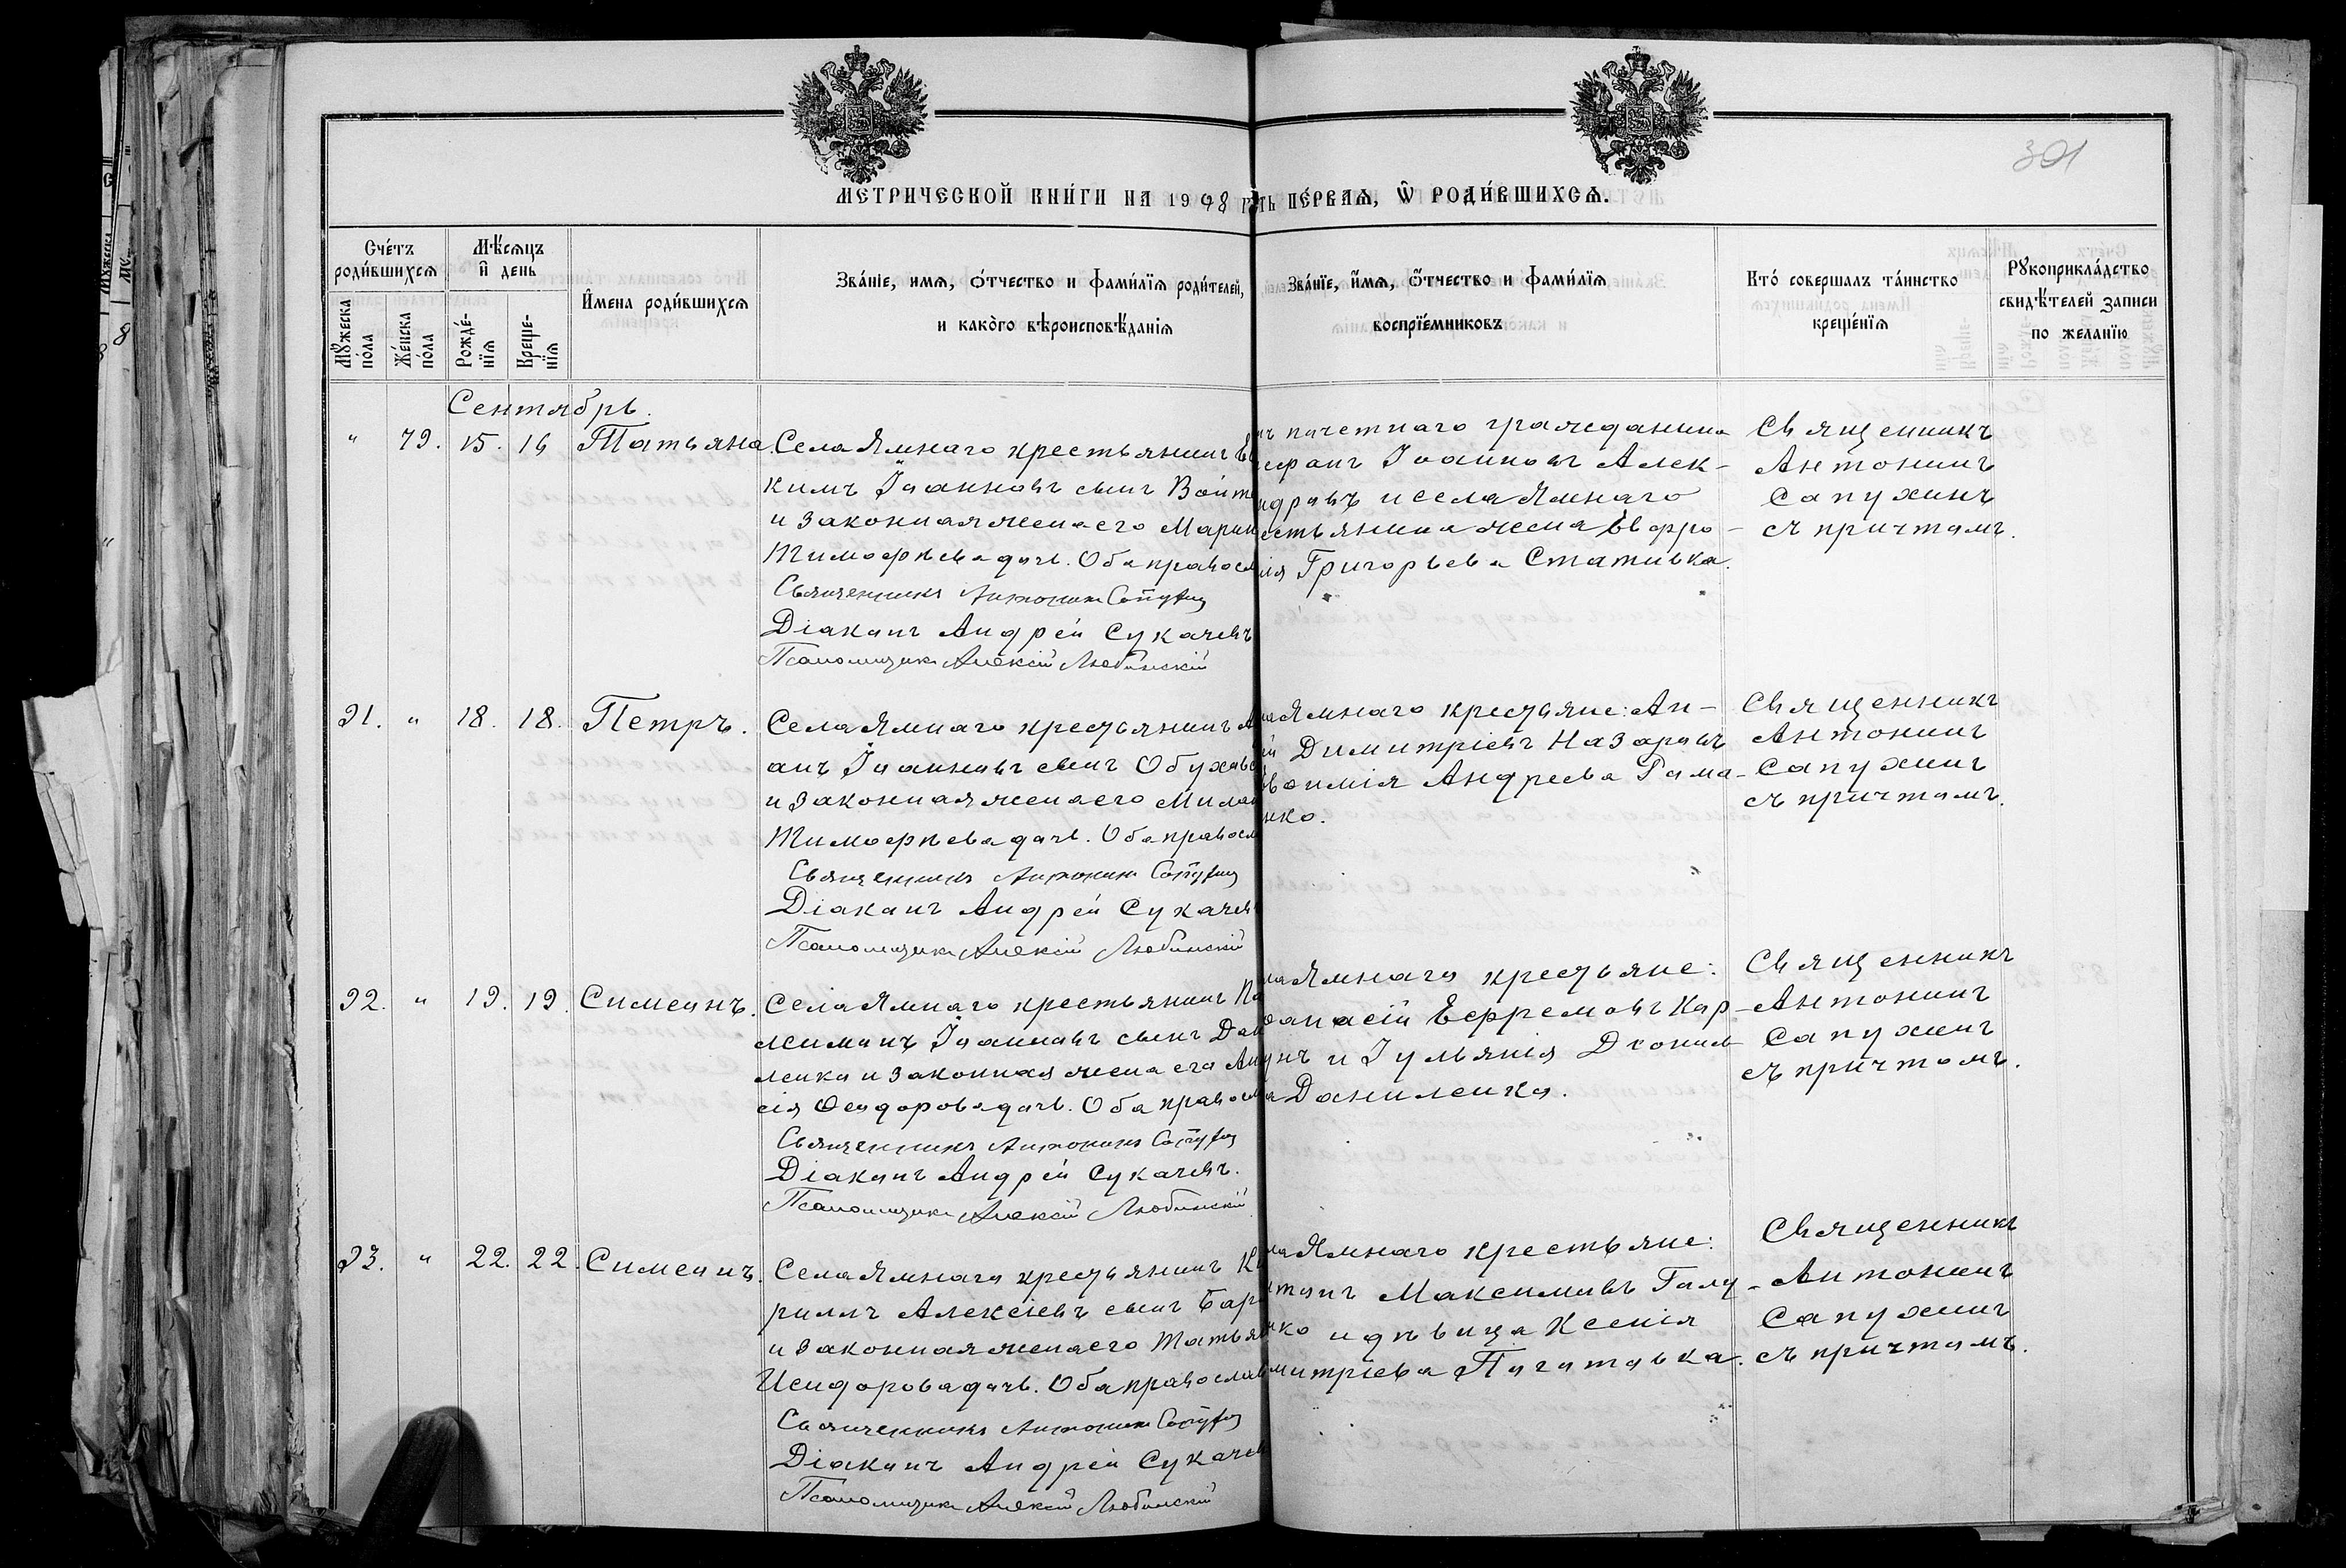 301
МЕТРИЧЕСКОЙ КНИГИ НА 1908 ГО ТЬ ПЕРВАЯ, Ѿ РОДИВШИХСЯ.
Счетъ родившихся
Мужеска пола
Женска пола
Мѣсяцъ и день
Рожденія
Крещенія
Имена родившихся
Званіе, имя, отчество и фамилія родителей,
и какого вѣроисповѣданія
Званіе, имя, отчество и фамилія
воспріемниковъ
Кто совершалъ таинство
крещенія
Рукоприкладство
свидѣтелей записи
по желанію
Сентябрь.
" 79. 15. 16 Татьяна.
Села Ямнаго крестьянинъ Ев
кимъ Іоанновъ сынъ Войт
и законная жена его Марин
Тимофѣева дочь. Оба правосл
Священникъ Антонинъ Сапухин
Діаконъ Андрей Сукачевъ
Псаломщикъ Алексій Любинскій
нъ почетнаго гражданина
Іоанновъ Алек-
ндровъ и села Ямнаго
естьянина жена Евфро-
нія Григорьева Стативка.
Священникъ
Антонинъ
Сапухинъ
съ причтомъ.
91. " 18. 18. Петръ.
Села Ямнаго крестьянинъ
анъ Іоанновъ сынъ Обухов
и законная жена его Милан
Тимофѣева дочь. Оба правосл
Священникъ Антонинъ Сапухин
Діаконъ Андрей Сукачев
Псаломщикъ Алексій Любинскій
ла Ямнаго крестьяне: Ан-
й Димитріевъ Назаровъ
Андреева Рома-
нко.
Священникъ
Антонинъ
Сапухинъ
съ причтомъ.
92. " 19. 19. Симеонъ.
Села Ямнаго крестьянинъ Па
жимонъ Іоанновъ сынъ Дан
ленко и законная жена его Ан
сія Ѳеодорова дочь. Оба правосл
Священникъ Антонинъ Сапухин
Діаконъ Андрей Сукачевъ.
Псаломщикъ Алексій Любинскій
ла Ямнаго крестьяне:
ѳанасій Ефремовъ Кор-
унъ и Іульянія Діоми
а Даниленко.
Священникъ
Антонинъ
Сапухинъ
съ причтомъ.
93. " 22. 22. Симеонъ.
Села Ямнаго крестьянинъ Ки
риллъ Алексіевъ сынъ Бар
и законная жена его Татья
Исидорова дочь. Оба православ
Священникъ Антонинъ Сапухин
Діаконъ Андрей Сукачев
Псаломщикъ Алексій Любинскій
ла Ямнаго крестьяне:
тонъ Максимовъ Галу-
нко и дѣвица Ксенія
митріева Паготовка.
Священникъ
Антонинъ
Сапухинъ
съ причтомъ.